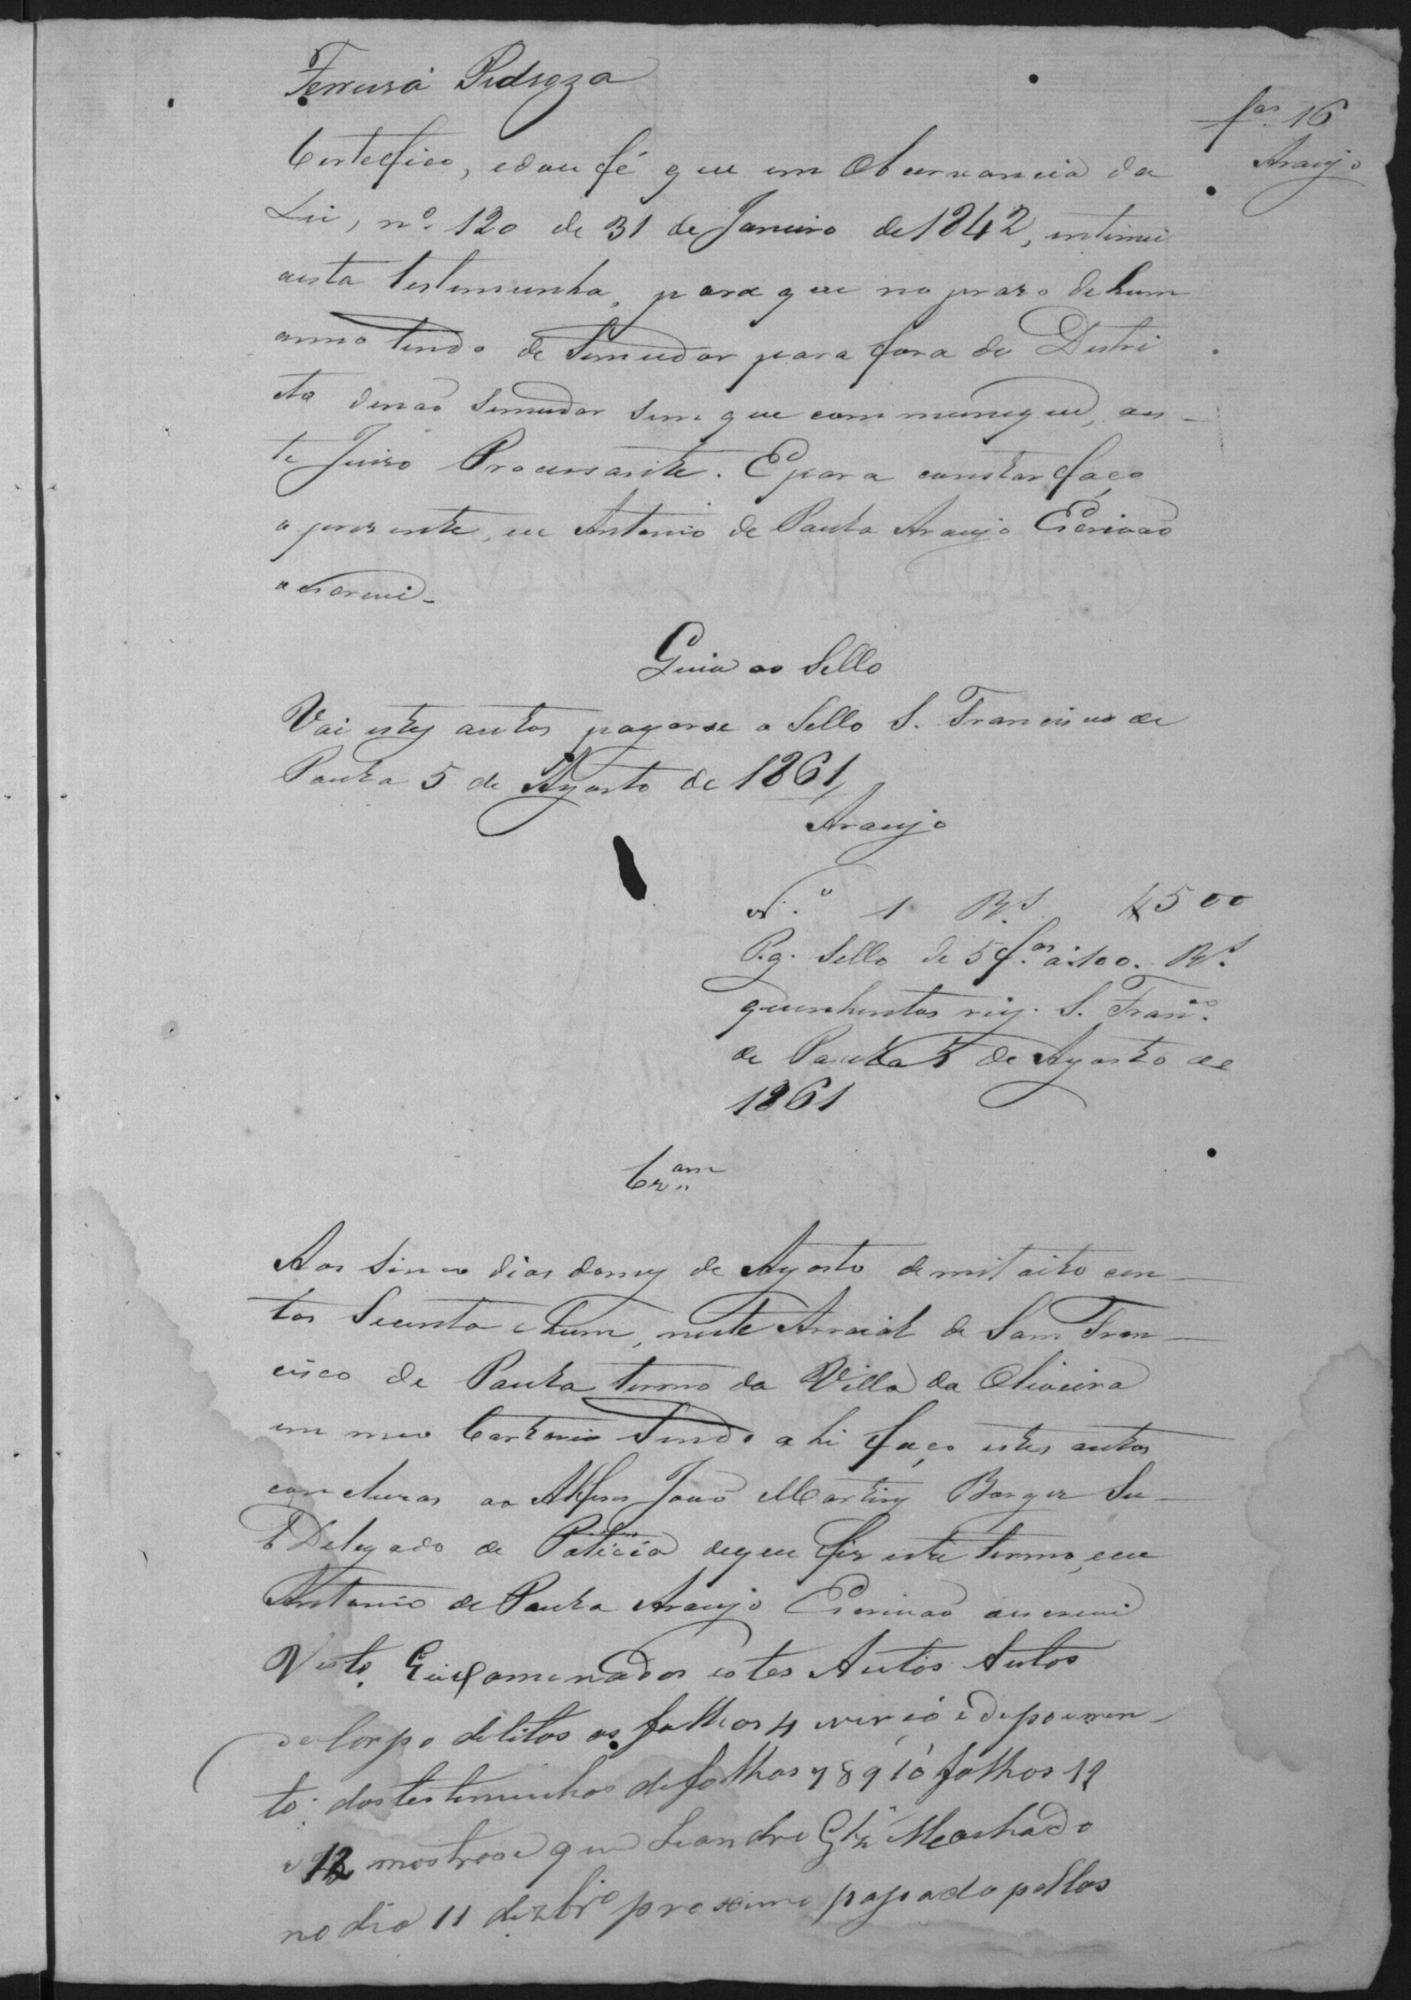 Ferrusá Pedroza
fas. 16
Araujo
Certefico, edou fé que em Observancia da
Lei, nº. 120 de 31 de Janeiro de 1842, intimei
aesta testemunha, para que no praso de hum
anno tendo de Semudar para fora do Destri
cto denaõ semudar sem que communique, aes-
te Juizo Processante. E para constar faço
o prezente, eu Antonio de Paula Araujo Escrivaõ
oescrevi.
Guia ao Sello
Vai estes autos pagarse o Sello S. Francisco de
Paula 5 de Agosto de 1861
Araujo
Nº. 1 Rs. $500
Pg. Sello de 5 fas. a 100. Rs.
quinhentos reis. S. Franco.
de Paula 5 de Agosto de
1861
Clzam
Aos sinco dias domes de Agosto demil oito cen-
tos Secenta ehum, neste Arraial de Sam Fran-
cisco de Paula termo da Villa da Oliveira
em meu Cartorio Sendo ahi faço estes autos
concluzos ao Alferes Joaõ Martins Borges Su-
b Delegado de Policia deque fiz este termo, eeu
Antonio de Paula Araujo Escrivaõ oescrevi
Visto. Eixzamenados estes Autos Autos
de Corpo delitos as folhas 4 e depoemen-
to. dastesteminhas defolhas 7 8 9 10 folhas 11
e 12 mostrase que Leandro Glz Machado
no dia 11 dezbro proximo paçado pellas